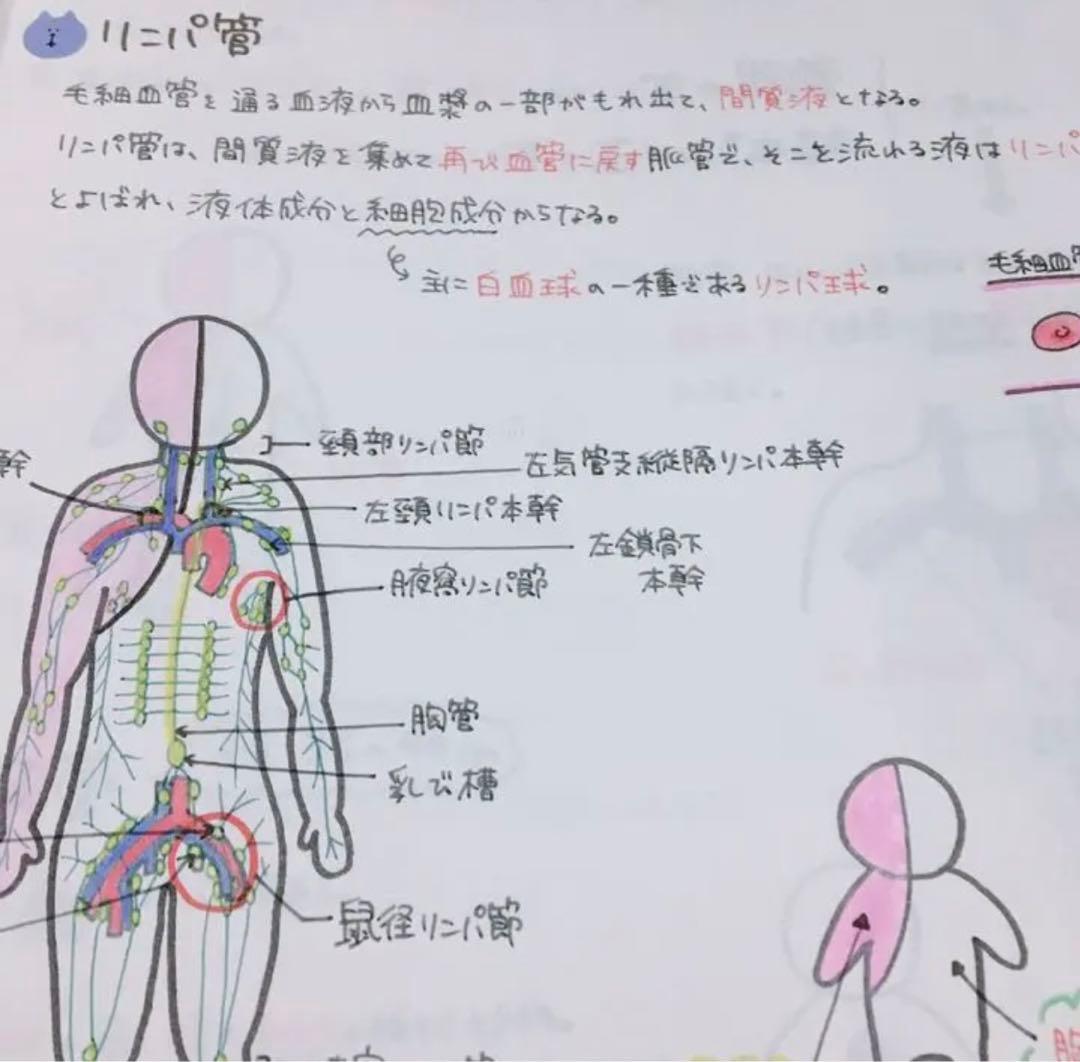 リンパ管
毛細血管を通る血液から血漿の一部がもれ出て、間質液となる。
リンパ管は、間質液を集めて再び血管に戻す脈管で、そこを流れる液はリンパ
とよばれ、液体成分と細胞成分からなる。
主に白血球の一種であるリンパ球。
毛細血管
頸部リンパ節
幹
左気管支縦隔リンパ本幹
左頸リンパ本幹
左鎖骨下
本幹
腋窩リンパ節
胸管
乳び槽
鼠径リンパ節
胸